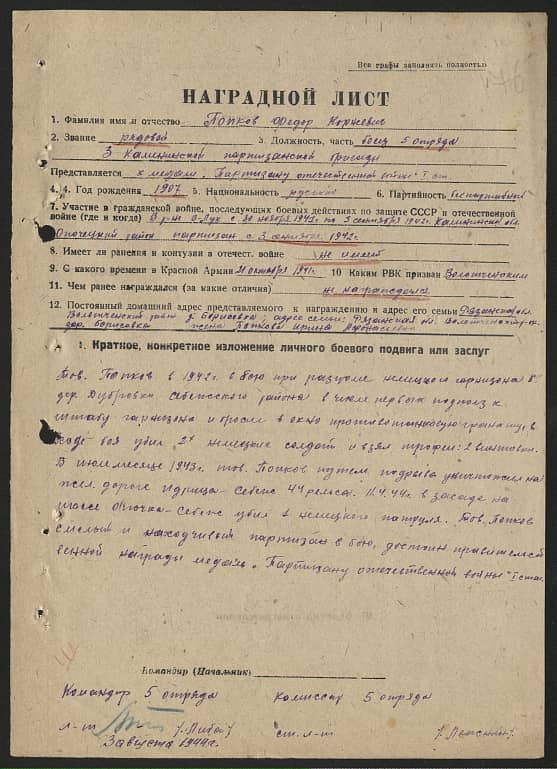 Все графы заполнять полностью
НАГРАДНОЙ ЛИСТ
1. Фамилия имя и отчество Попков Федор Корнеевич
2. Звание рядовой 3. Должность, часть боец 5 отряда
3 Калининской партизанской бригады
Представляется к медали „Партизану отечественной войны" I ст.
4. 4. Год рождения 1907 5. Национальность русский 6. Партийность беспартийный
7. Участие в гражданской войне, последующих боевых действиях по защите СССР и отечественной
войне (где и когда) В р-не В-Лук с 1942г. по 3 сентября 1942г. Калининская обл.
Опочецкий район партизан с 3 сентября 1942г.
8. Имеет ли ранения и контузии в отечест. войне не имеет
9. С какого времени в Красной Армии октября 1941г. 10 Каким РВК призван
11. Чем ранее награждался (за какие отличия) не награждался
12. Постоянный домашний адрес представляемого к награждению и адрес его семьи Рязанская обл.
район д. Борисовка, адрес семьи: Рязанская обл.
дер. Борисовка жена Попкова Ирина
1. Краткое, конкретное изложение личного боевого подвига или заслуг
Тов. Попков в 1942г. в бою при разгроме немецкого гарнизона в
дер. Дубровка Себежского района в числе первых подполз к
штабу гарнизона и бросил в окно противотанковую гранату, в
ходе боя убил 2х немецких солдат и взял трофеи: 2 винтовки.
В июле месяце 1943г. тов. Попков путем подрыва уничтожил на
жел. дороге Идрица-Себеж 44 рельса. 11.4.44г. в засаде на
шоссе Опочка-Себеж убил 1 немецкого патруля. Тов. Попков
смелый и находчивый партизан в бою, достоин правительст-
венной награды медаль „Партизану отечественной войны" I степ.
Командир (Начальник)
Командир 5 отряда комиссар 5 отряда
л-т ст. л-т
3 августа 1944г.